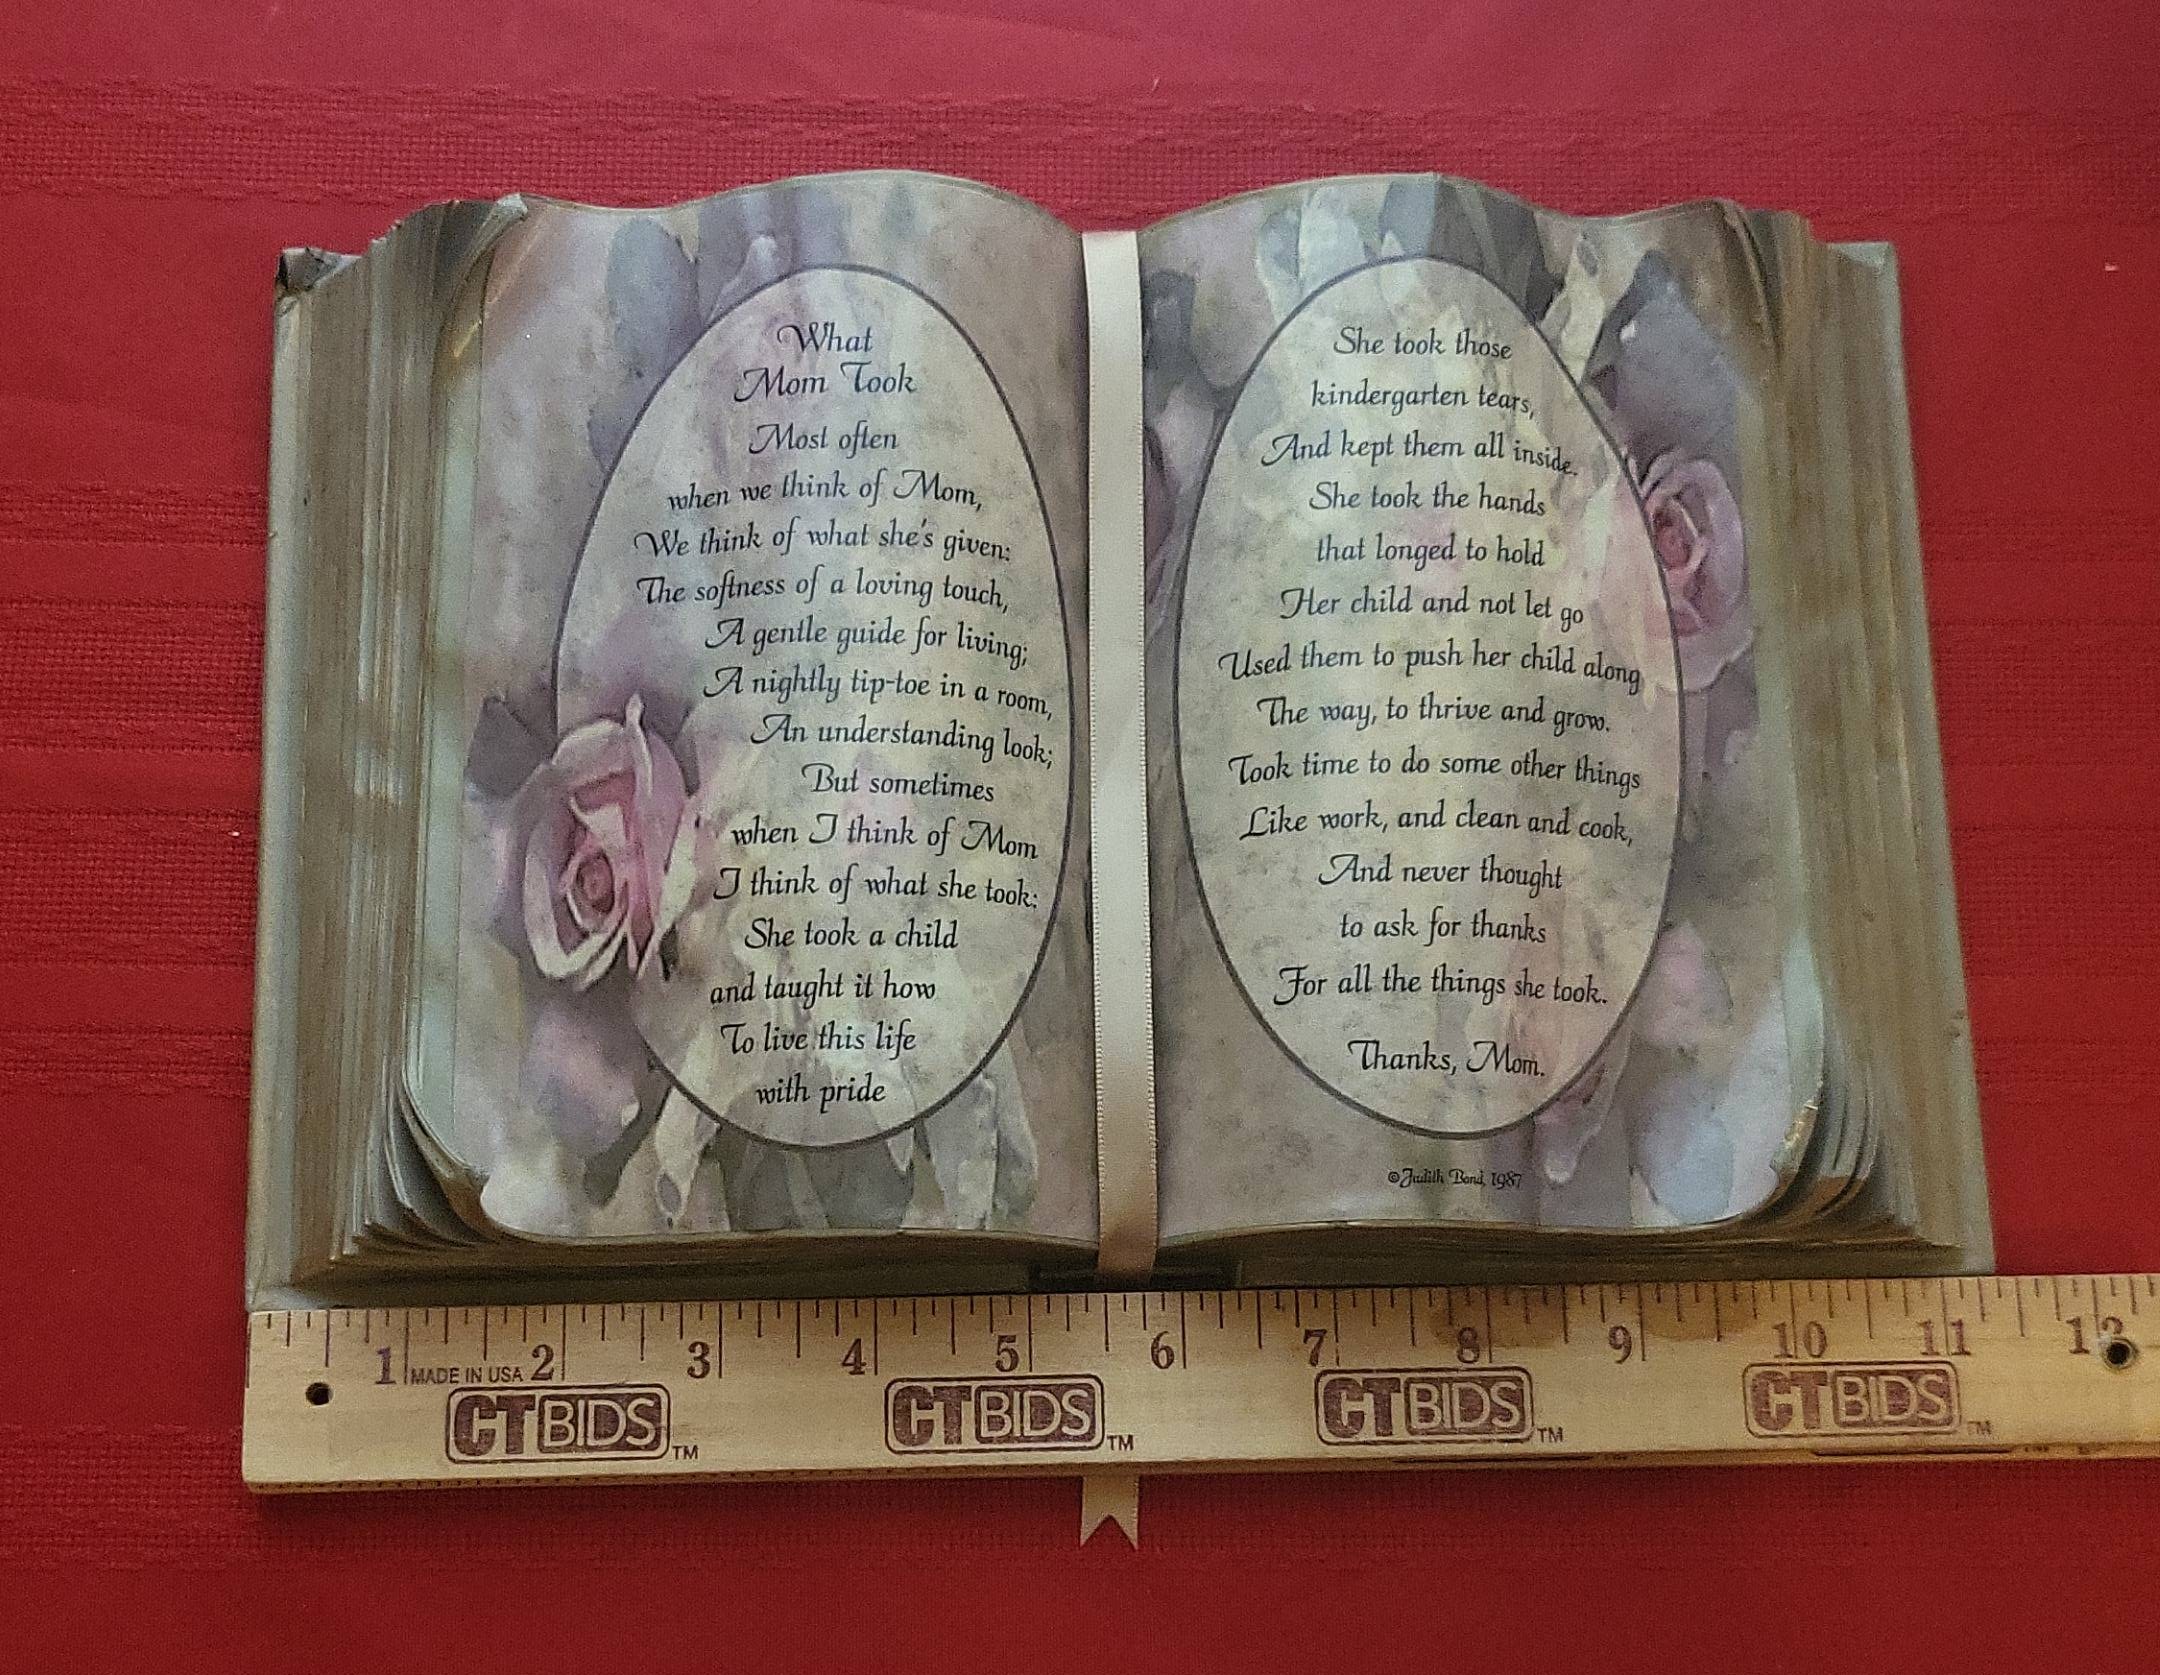 What
Mom Took
Most often
when we think of Mom,
We think of what she's given:
The softness of a loving touch,
A gentle guide for living;
A nightly tip-toe in a room,
An understanding look;
But sometimes
when I think of Mom
I think of what she took:
She took a child
and taught it how
To live this life
with pride
She took those
kindergarten tears,
And kept them all inside.
She took the hands
that longed to hold
Her child and not let go
Used them to push her child along
The way, to thrive and grow.
Took time to do some other things
Like work, and clean and cook,
And never thought
to ask for thanks
For all the things she took.
Thanks, Mom.
©Judith Bond, 1987
1 2 3 4 5 6 7 8 9 10 11 12
MADE IN USA
CTBIDS™ CTBIDS™ CTBIDS™ CTBIDS™